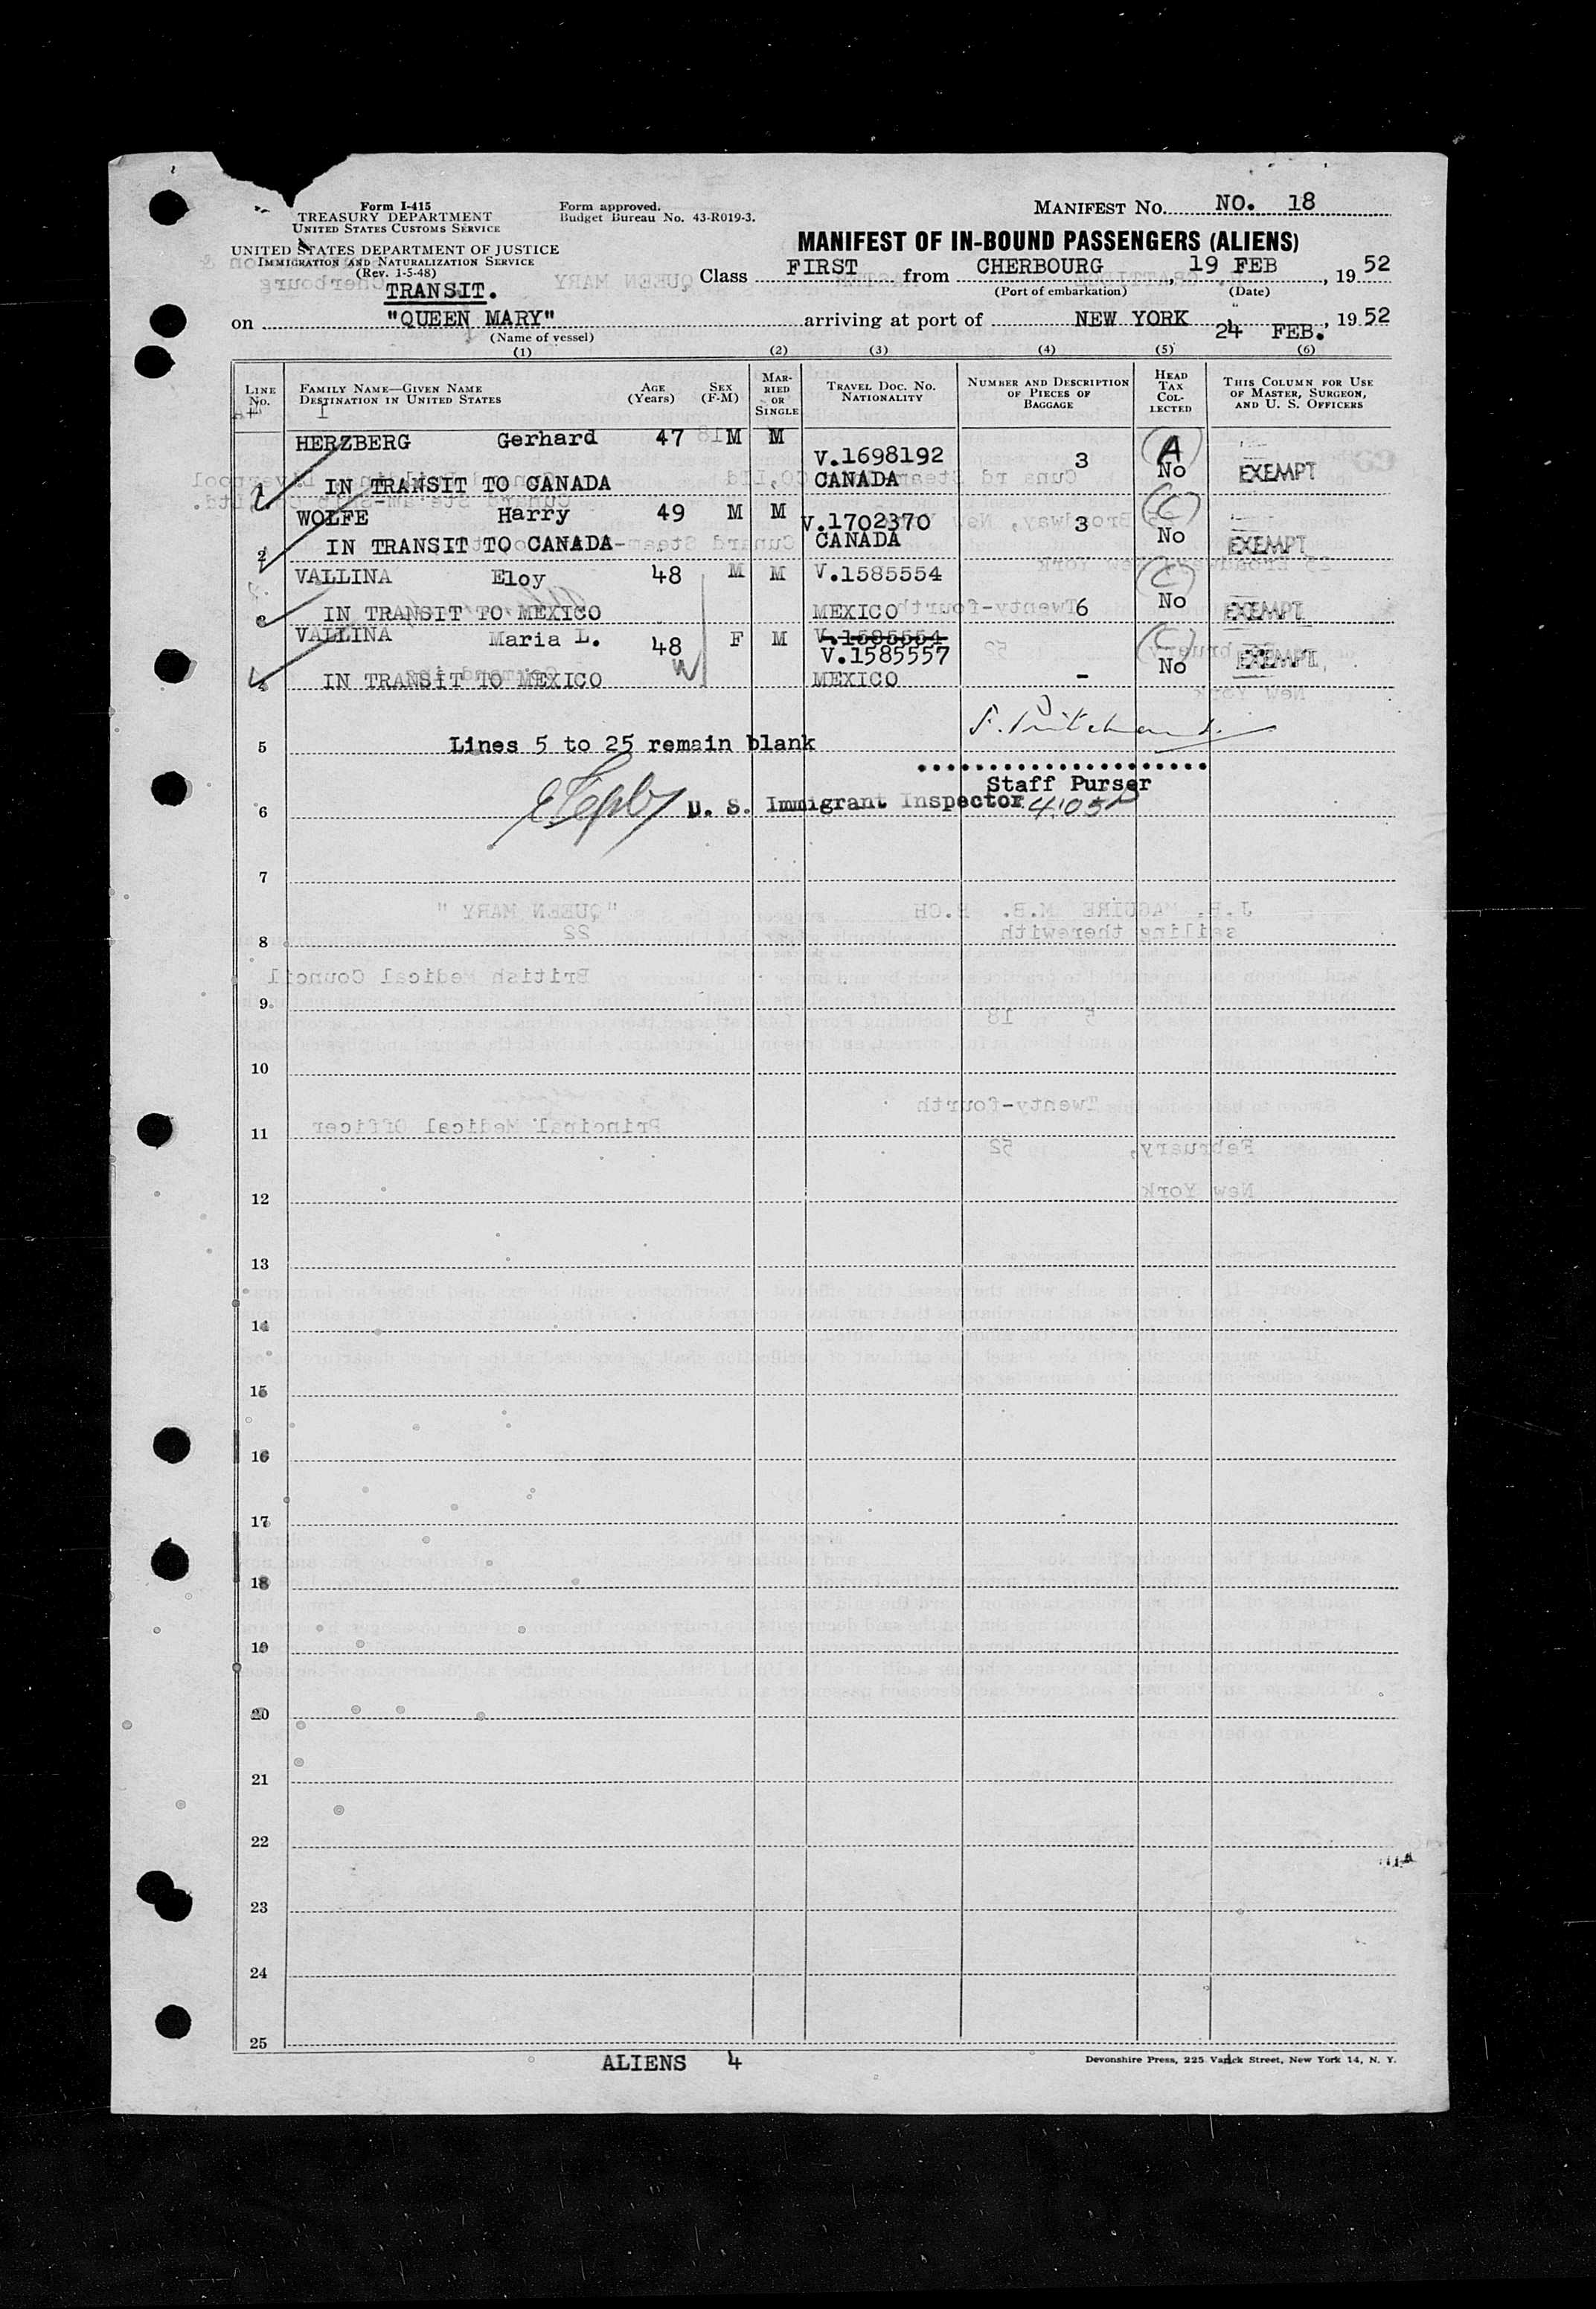 Form I-415
TREASURY DEPARTMENT
UNITED STATES CUSTOMS SERVICE
UNITED STATES DEPARTMENT OF JUSTICE
IMMIGRATION AND NATURALIZATION SERVICE
(Rev. 1-5-48)
TRANSIT.
Form approved.
Budget Bureau No. 43-R019-3.
MANIFEST NO. NO. 18
MANIFEST OF IN-BOUND PASSENGERS (ALIENS)
Class FIRST from CHERBOURG, 19 FEB, 1952
(Port of embarkation) (Date)
on "QUEEN MARY" arriving at port of NEW YORK 24 FEB., 1952
(Name of vessel)
(1) (2) (3) (4) (5) (6)
LINE NO. FAMILY NAME—GIVEN NAME DESTINATION IN UNITED STATES AGE (Years) SEX (F-M) MARRIED OR SINGLE TRAVEL DOC. NO. NATIONALITY NUMBER AND DESCRIPTION OF PIECES OF BAGGAGE HEAD TAX COLLECTED THIS COLUMN FOR USE OF MASTER, SURGEON, AND U. S. OFFICERS
HERZBERG Gerhard 47 M M V.1698192 3 A No EXEMPT
1 IN TRANSIT TO CANADA CANADA
WOLFE Harry 49 M M V.1702370 3 (C) No EXEMPT
2 IN TRANSIT TO CANADA CANADA
VALLINA Eloy 48 M M V.1585554 (C)
3 IN TRANSIT TO MEXICO MEXICO 6 No EXEMPT
VALLINA Maria L. 48 F M V.1585554 (C)
V.1585557 No EXEMPT
4 IN TRANSIT TO MEXICO MEXICO -
F. Pritchard.
5 Lines 5 to 25 remain blank
Staff Purser
6 U. S. Immigrant Inspector 4:05P
7
8
9
10
11
12
13
14
15
16
17
18
19
20
21
22
23
24
25
ALIENS 4
Devonshire Press, 225 Varick Street, New York 14, N. Y.